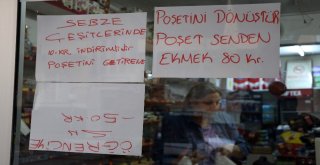 SEBZE
ÇEŞİTLERİNDE
10.KR. İNDİRİMLİDİR
POŞETİNİ GETİRENE
POŞETİNİ DÖNÜŞTÜR
POŞET SENDEN
EKMEK 80 Kr.
ÖĞRENCİYE
-50 KR